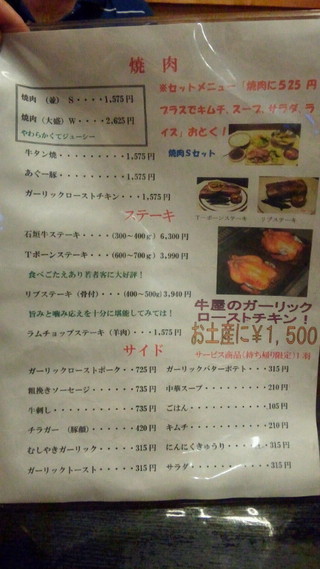 焼 肉
焼肉 (並) S・・・・1,575 円
焼肉 (大盛) W・・・・2,625 円
やわらかくてジューシー
牛タン焼・・・・・・・・・・1,575 円
あぐー豚・・・・・・・・・・1,575 円
ガーリックローストチキン・・・1,575 円
セットメニュー「焼肉に525 円
プラスでキムチ、スープ、サラダ、ラ
イス」おとく!
焼肉Sセット
Tーボーンステーキ
リブステーキ
ステーキ
石垣牛ステーキ・・・・(300~400g) 6,300 円
Tボーンステーキ・・・(600~700g) 3,990 円
食べごたえあり若者客に大好評!
リブステーキ (骨付)・・・(400~500g) 3,940 円
旨みと噛み応えを十分に堪能してみては!
ラムチョップステーキ (羊肉)・・・1,575 円
牛屋のガーリック
ローストチキン!
お土産に¥1,500
サービス商品(持ち帰り限定)1羽
サイド
ガーリックローストポーク・・725 円
粗挽きソーセージ・・・・・735 円
牛刺し・・・・・・・・・・735 円
チラガー (豚顔)・・・・・・420 円
むしやきガーリック・・・・・315 円
ガーリックトースト・・・・・315 円
ガーリックバターポテト・・・315 円
中華スープ・・・・・・・・210 円
ごはん・・・・・・・・・・105 円
キムチ・・・・・・・・・・210 円
にんにくきゅうり・・・・・315 円
サラダ・・・・・・・・・・315 円